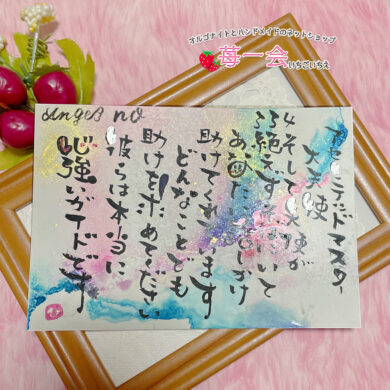 オルゴナイトとハンドメイドのネットショップ
苺一会
いちごいちえ
angel no
アセンデッドマスター
大天使
そして天使が
絶えず
あなた
助けてくれいます
どんなことでも
助けを求めてください
彼らは本当に
心強いガイドです